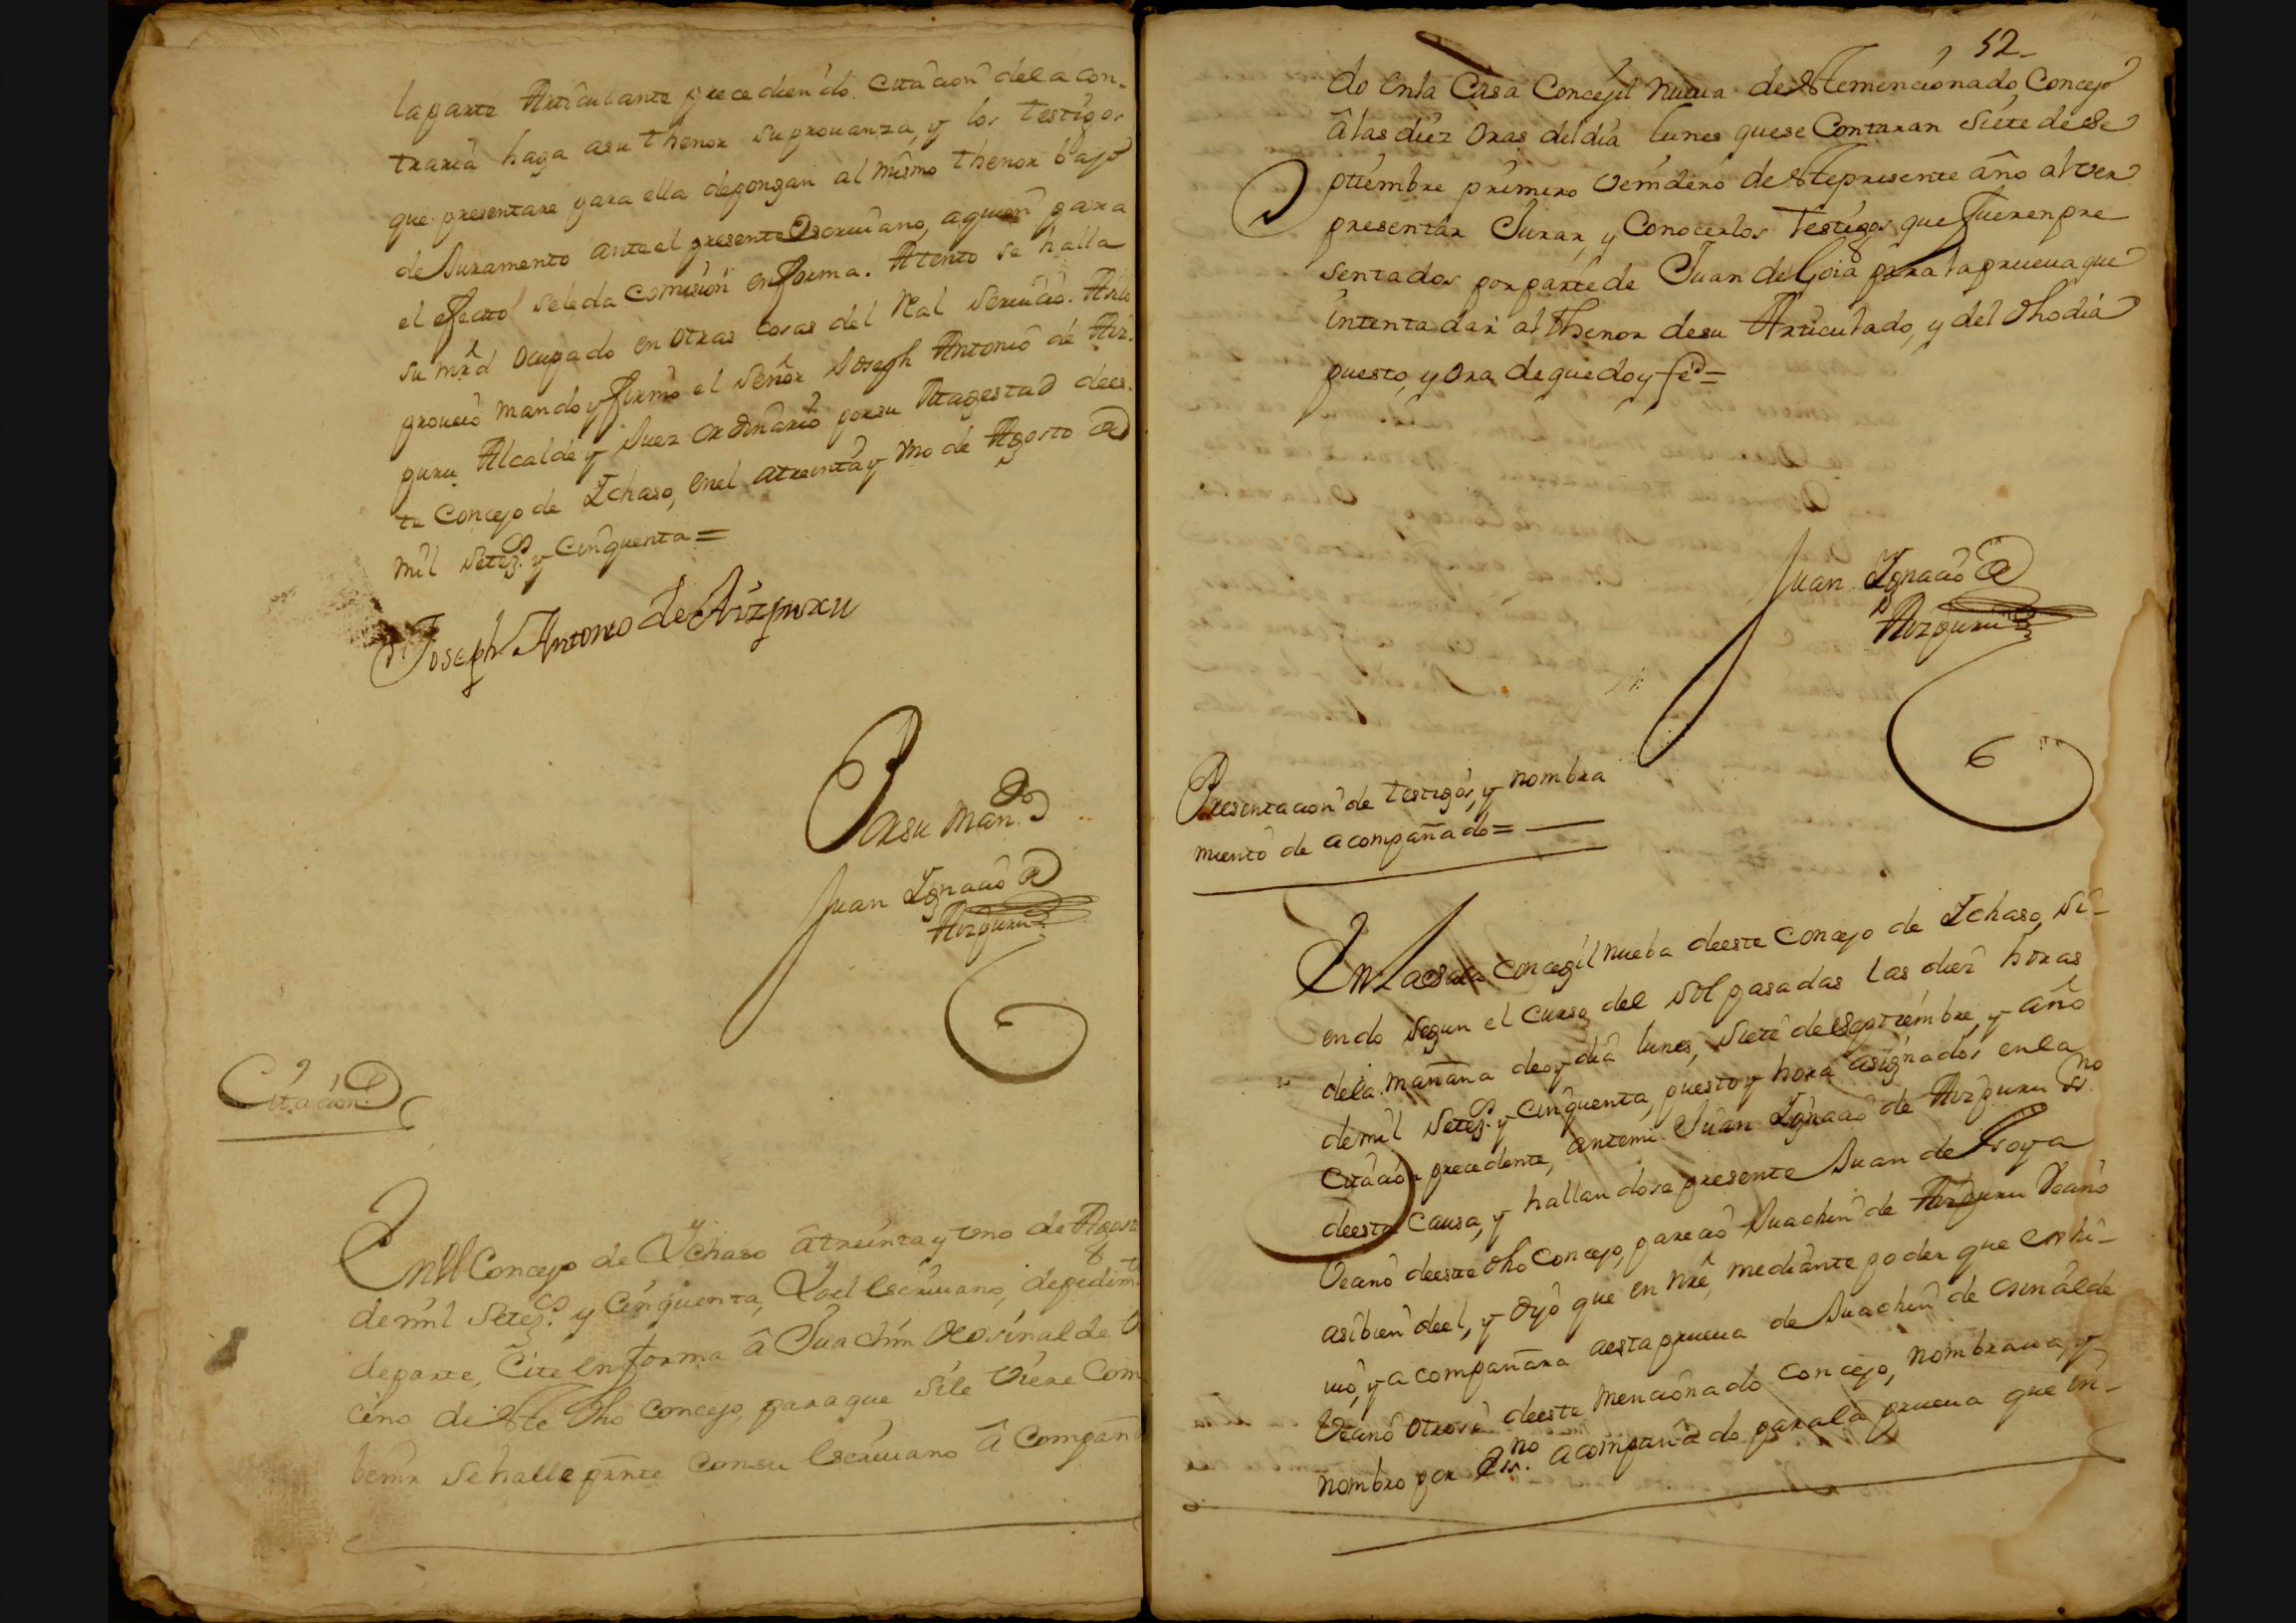 la parte Articulante precediendo citacion de la con-
traria haga a su thenor su prouanza, y los testigos
que presentare para ella depongan al mismo thenor bajo
de Juramento ante el presente Escriuano, a quien para
el efecto se le da comision en forma. Atento se halla
su mrd ocupado en otras cosas del Real seruicio. Asi lo
proueió mando y firmó el Señor Joseph Antonio de Aiz-
puru Alcalde y Juez ordinario por su Magestad de es-
te Concejo de Ichaso, en el a treinta y uno de Agosto de
mil Setez.s y cinquenta =
Joseph Antonio de Aizpuru
Por su Man.do
Juan Ignacio de
Aizpuru
Citacion
En el Concejo de Ychaso â treinta y uno de Agosto
de mil Setez.s y Cinquenta, Yo el Escriuano, de pedim.to
de parte, Cité en forma â Juachin de Osinalde Ve
cino de este dho Concejo, para que si le Viere Com
benir se halle pnte con su Escriuano â Compañ
52
do en la Casa Concejil nueua de este mencionado Concejo
â las diez oras del dia lunes que se Contaran Siete de Se
ptiembre primero Venidero de este presente año al ver
presentar Jurar, y Conocer los Testigos que fueren pre
sentados por parte de Juan de Goia para la prueua que
intenta dar al thenor de su Articulado, y del dho dia
puesto, y ora de que doy fé =
Juan Ignacio de
Aizpuru
Presentacion de testigos, y nombra
miento de acompañado =
En la Sala concegil nueba de este concejo de Ichaso, si-
endo segun el curso del sol pasadas las diez horas
de la mañana de oy dia lunes, siete de septiembre, y año
de mil Setez.s y cinquenta, puesto y hora asignados en la
citacion precedente, ante mi Juan Ignacio de Aizpuru Es.no
de esta causa, y hallandose presente Juan de Goya
Vecino de este dho concejo, pareció Juachin de Aizpuru Vecino
asi bien de el, y dijo que en nre, mediante poder que exhi-
uió, y acompañara a esta prueua de Juachin de Osinalde
Vecino otrosi de este mencionado concejo, nombraua, y
nombro por Es.no acompañado para la prueua que in-